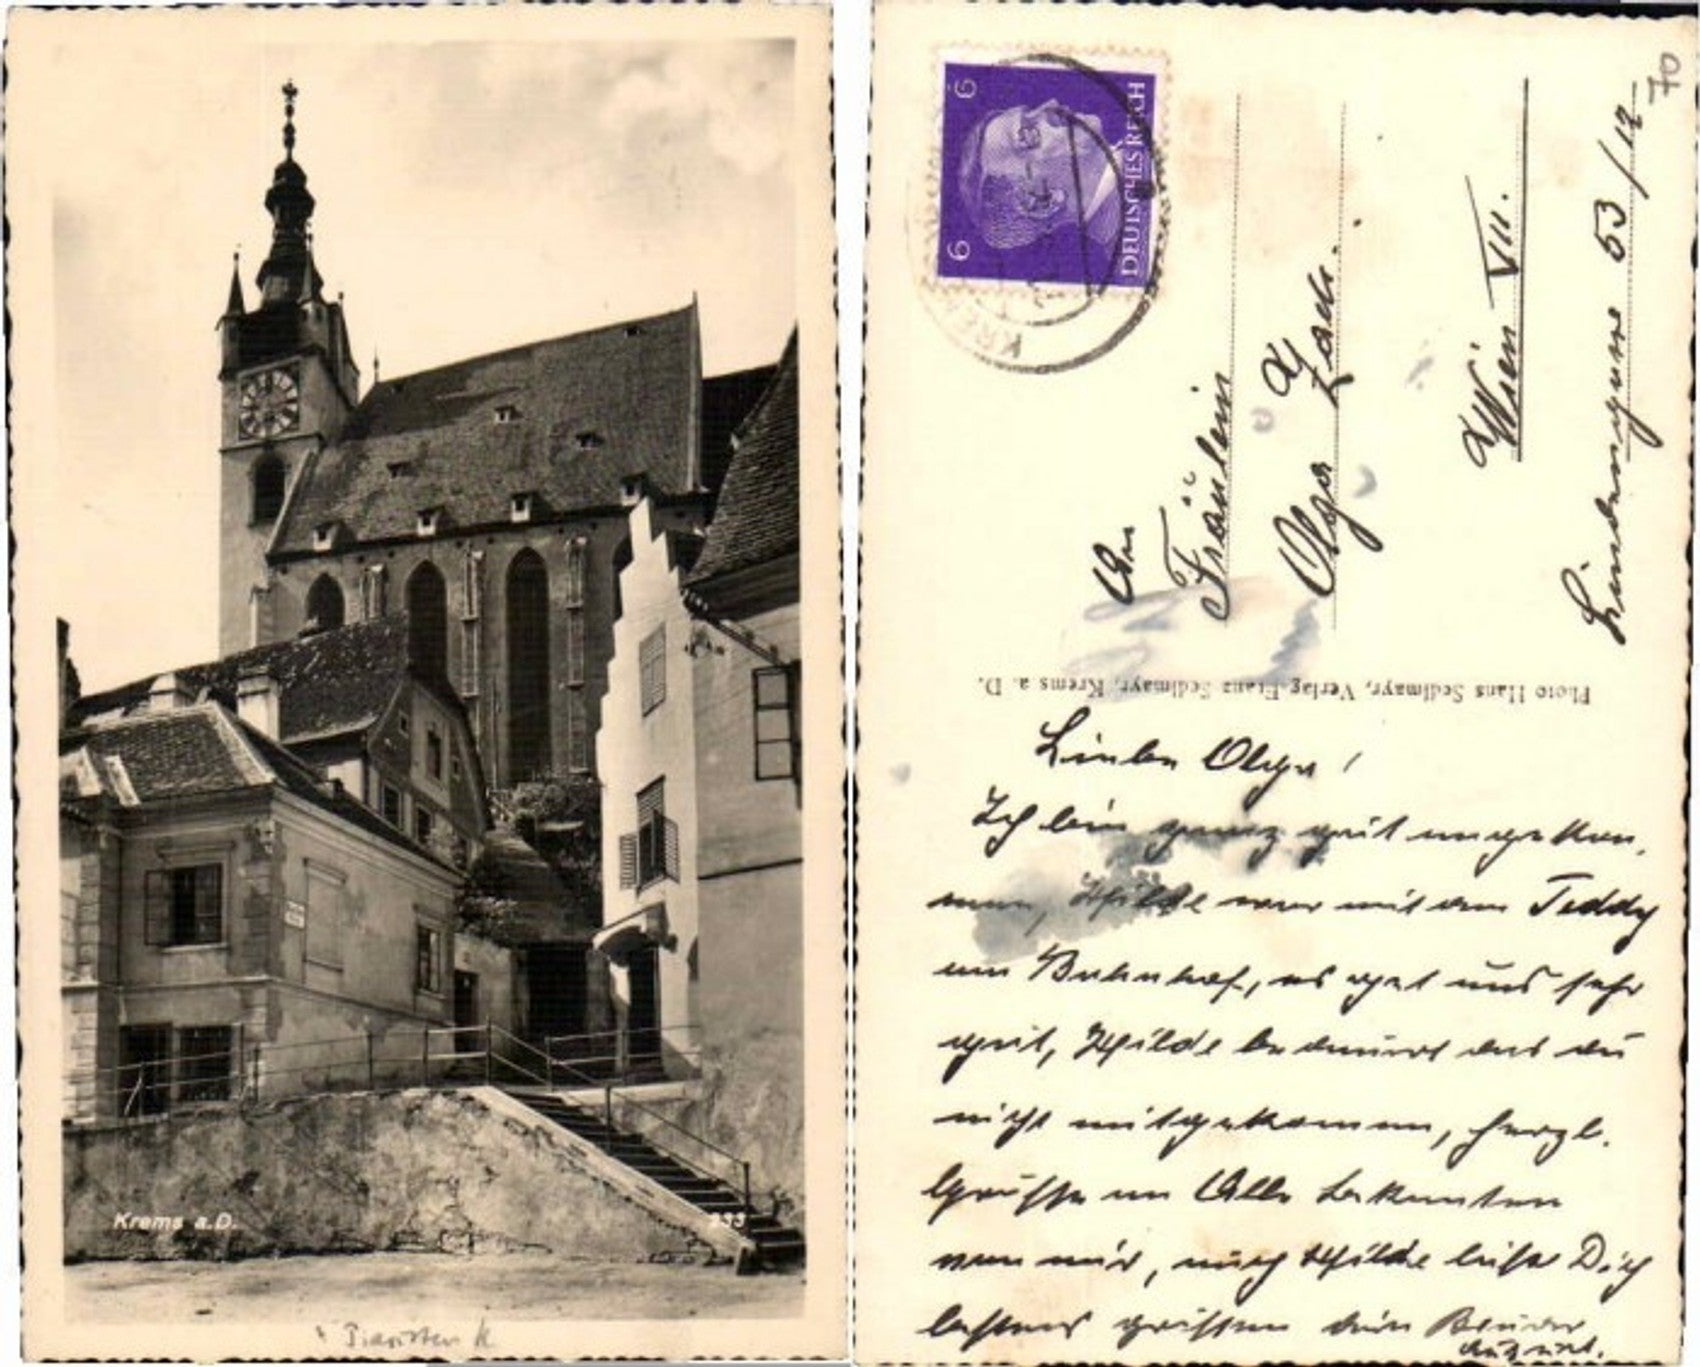 Krems a.D.
233
Piaristen K
6
6
DEUTSCHES REICH
KREMS
70
An
Fräulein
Olga Zach.
Wien VII.
Lindengasse 53/12
Photo Hans Sedlmayr, Verlag Franz Sedlmayr, Krems a. D.
Liebe Olga!
Ich bin ganz gut angekom,
men, Hilde war mit dem Teddy
am Bahnhof, es get uns sehr
gut, Hilde bedauert das du
nicht mitgekommen, herzl.
Grüsse an Alle Bekannten
von mir, auch Hilde läst Dich
bestens grüssen dein Bruder
August.